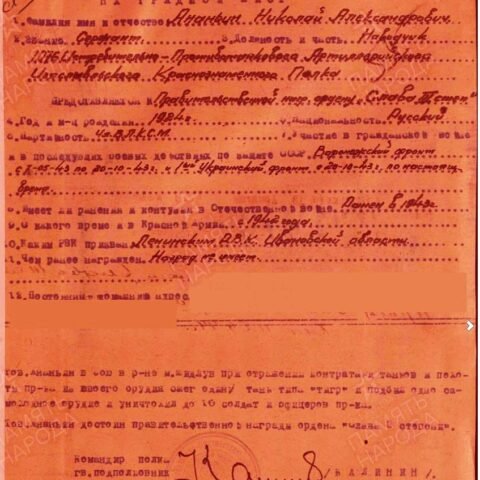 НАГРАДНОЙ ЛИСТ
1. Фамилия имя и отчество Ананьин Николай Александрович
2. Звание Сержант 3. Должность и часть Наводчик
1076 Истребительно-Противотанкового Артиллерийского
Краснознаменного Полка
Представляется к Правительственной нагр. ордену "Слава III степ"
4. Год и м-ц рождения 1924г. 5. Национальность Русский
6. Партийность Чл. ВЛКСМ. 7. Участие в гражданской войне
и в последующих боевых действиях по защите СССР. Воронежский фронт
по 20-10-43 г. и 1ый Украинский фронт с 20-10-43 г. по настоящ.
время
8. Имеет ли ранения и контузии в Отечественной войне Ранен в 1943г.
9. С какого время и в Красной армии с 1942 года
10. Каким РВК призван Ленинским Р.В.К. Ивановской области
11. Чем ранее награжден
12. Постоянный домашний адрес
тов. Ананьин в бою в р-не м. при отражении контратаки танков и пехо-
ты пр-ка из своего орудия сжег один/ танк типа "тигр" и подбил одно са-
моходное орудие и уничтожил до 10 солдат и офицеров пр-ка.
Тов. Ананьин достоин правительственной награды ордена степени".
Командир полка
гв. подполковник /КАЛИНИН/.
ПАМЯТЬ НАРОДА